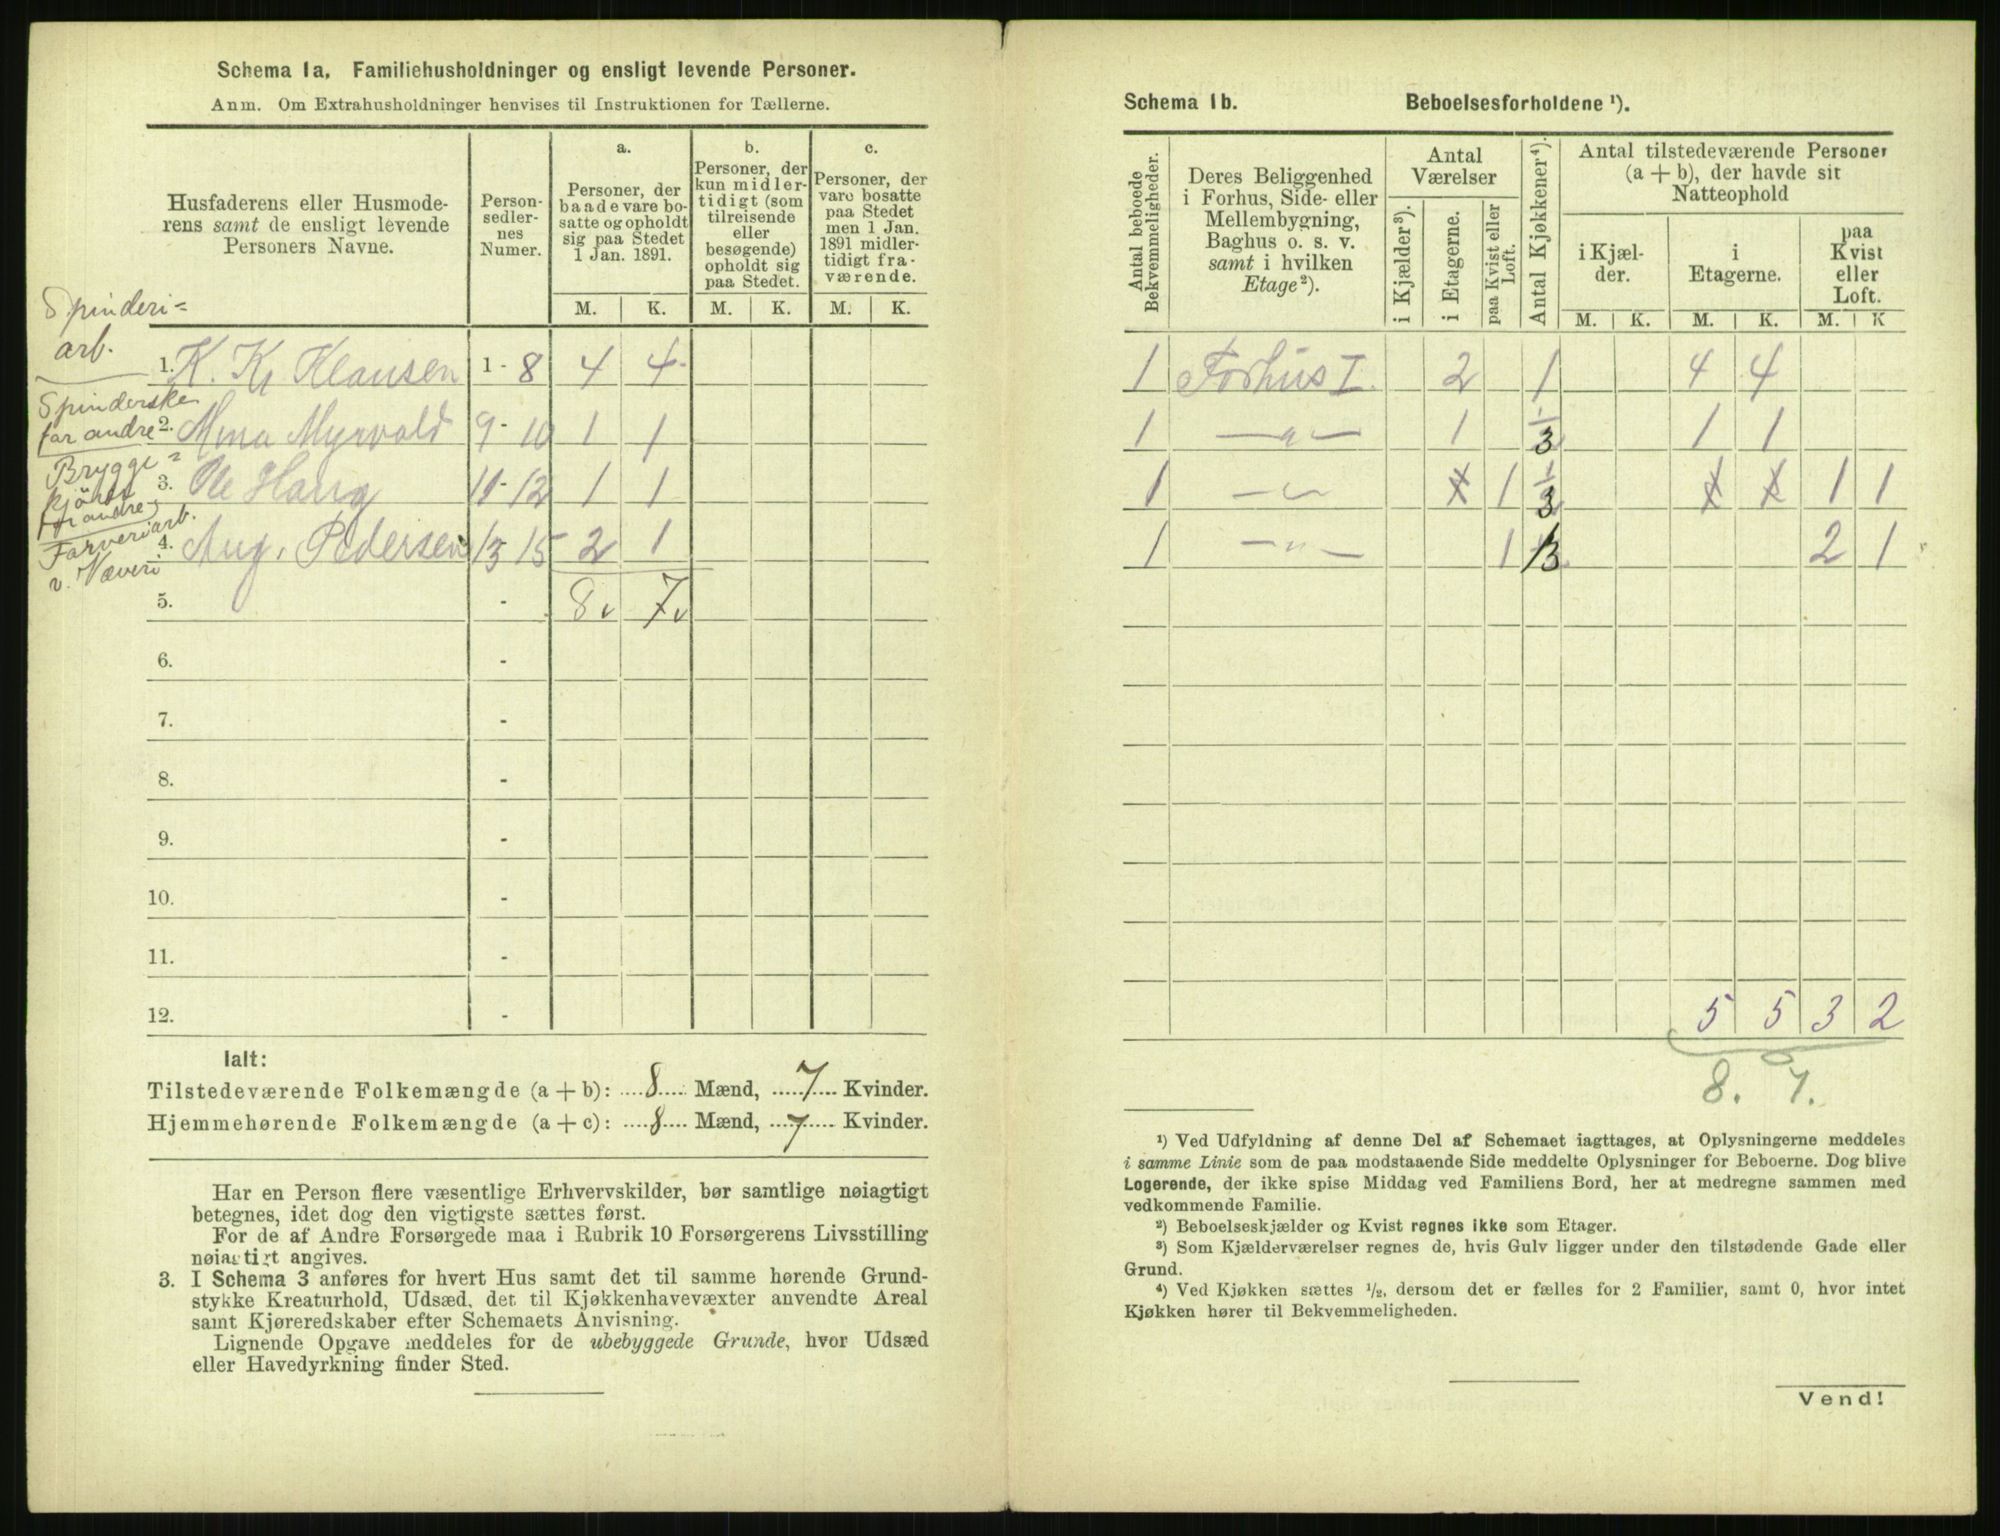 Schema 1a, Familiehusholdninger og ensligt levende Personer.
Anm. Om Extrahusholdninger henvises til Instruktionen for Tællerne.
Husfaderens eller Husmode-
rens samt de ensligt levende
Personers Navne.
Person-
sedler-
nes
Numer.
a.
Personer, der
baade vare bo-
satte og opholdt
sig paa Stedet
1 Jan. 1891.
b.
Personer, der
kun midler-
tidigt (som
tilreisende
eller
besøgende)
opholdt sig
paa Stedet.
c.
Personer, der
vare bosatte
paa Stedet
men 1 Jan.
1891 midler-
tidigt fra-
værende.
M. K. M. K. M. K.
Spinderi=
arb.
1. K. Kr. Klausen 1 - 8 4 4
Spinderske
for andre
2. Mina Myrvold 9 - 10 1 1
Brygge=
for andre
3. Ole Haug 11 - 12 1 1
Farveriarb.
v. Væveri
4. Aug. Pedersen 13 - 15 2 1
5. - 8 7
6. -
7. -
8. -
9. -
10. -
11. -
12. -
Ialt:
Tilstedeværende Folkemængde (a + b): 8 Mænd, 7 Kvinder.
Hjemmehørende Folkemængde (a + c): 8 Mænd, 7 Kvinder.
Har en Person flere væsentlige Erhvervskilder, bør samtlige nøiagtigt
betegnes, idet dog den vigtigste sættes først.
For de af Andre Forsørgede maa i Rubrik 10 Forsørgerens Livsstilling
nøiagtigt angives.
3. I Schema 3 anføres for hvert Hus samt det til samme hørende Grund-
stykke Kreaturhold, Udsæd, det til Kjøkkenhavevæxter anvendte Areal
samt Kjøreredskaber efter Schemaets Anvisning.
Lignende Opgave meddeles for de ubebyggede Grunde, hvor Udsæd
eller Havedyrkning finder Sted.
Schema 1b. Beboelsesforholdene ¹).
Antal beboede
Bekvemmeligheder.
Deres Beliggenhed
i Forhus, Side- eller
Mellembygning,
Baghus o. s. v.
samt i hvilken
Etage²).
Antal
Værelser
i Kjælder³).
i Etagerne.
paa Kvist eller
Loft.
Antal Kjøkkener⁴).
Antal tilstedeværende Personer
(a + b), der havde sit
Natteophold
i Kjæl-
der.
i
Etagerne.
paa
Kvist
eller
Loft.
M. K. M. K. M. K
1 Forhus I 2 1 4 4
1 —„— 1 1/3 1 1
1 —„— 1 1 1/3 1 1 1 1
1 —„— 1 1/3 2 1
5 5 3 2
8. 7.
¹) Ved Udfyldning af denne Del af Schemaet iagttages, at Oplysningerne meddeles
i samme Linie som de paa modstaaende Side meddelte Oplysninger for Beboerne. Dog blive
Logerende, der ikke spise Middag ved Familiens Bord, her at medregne sammen med
vedkommende Familie.
²) Beboelseskjælder og Kvist regnes ikke som Etager.
³) Som Kjælderværelser regnes de, hvis Gulv ligger under den tilstødende Gade eller
Grund.
⁴) Ved Kjøkken sættes ¹/₂, dersom det er fælles for 2 Familier, samt 0, hvor intet
Kjøkken hører til Bekvemmeligheden.
Vend!